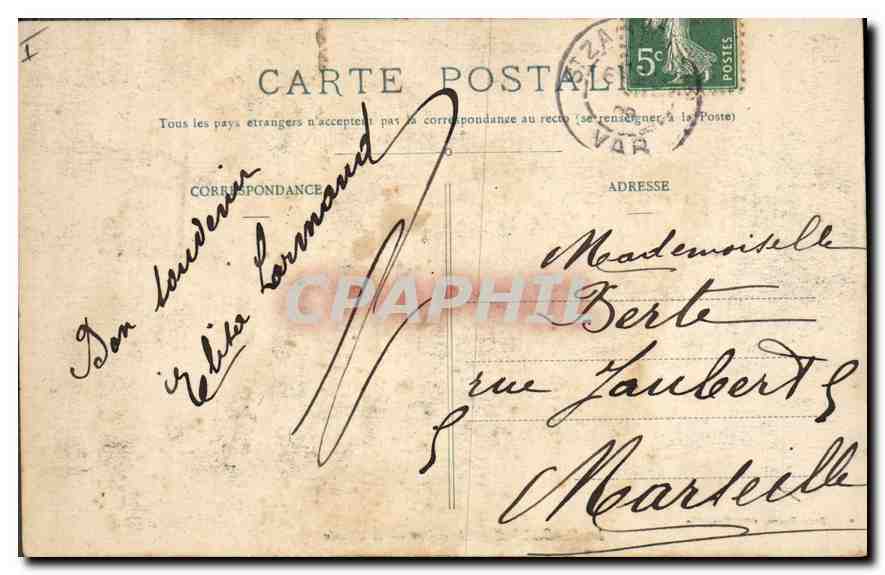 CARTE POSTALE
Tous les pays étrangers n'acceptent pas la correspondance au recto (se renseigner à la Poste)
5c POSTES
ST ZA
VAR
CORRESPONDANCE
ADRESSE
Bon souvenir
Elisa Larmand
Mademoiselle
Berte
rue Jaubert 5
5 Marseille
CPAPHIL